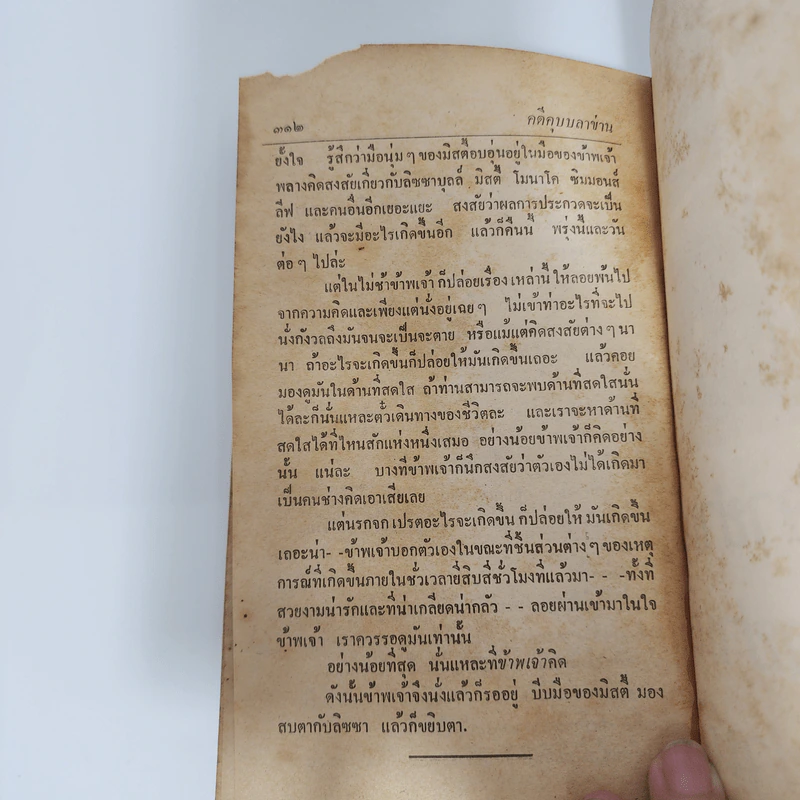 ๓๑๒ คดีคุบบลาข่าน
ยั้งใจ รู้สึกว่ามือนุ่ม ๆ ของมิสตี้อบอุ่นอยู่ในมือของข้าพเจ้า
พลางคิดสงสัยเกี่ยวกับลิซซาบุลล์ มิสตี้ โมนาโค ซิมมอนส์
ลีฟ และคนอื่นอีกเยอะแยะ สงสัยว่าผลการประกวดจะเป็น
ยังไง แล้วจะมีอะไรเกิดขึ้นอีก แล้วก็คืนนี้ พรุ่งนี้และวัน
ต่อ ๆ ไปล่ะ
แต่ในไม่ช้าข้าพเจ้า ก็ปล่อยเรื่อง เหล่านี้ ให้ลอยพ้นไป
จากความคิดและเพียงแต่นั่งอยู่เฉย ๆ ไม่เข้าท่าอะไรที่จะไป
นั่งกังวลถึงมันจนจะเป็นจะตาย หรือแม้แต่คิดสงสัยต่าง ๆ นา
นา ถ้าอะไรจะเกิดขึ้นก็ปล่อยให้มันเกิดขึ้นเถอะ แล้วคอย
มองดูมันในด้านที่สดใส ถ้าท่านสามารถจะพบด้านที่สดใสนั่น
ได้ละก็นั่นแหละตั๋วเดินทางของชีวิตละ และเราจะหาด้านที่
สดใสได้ที่ไหนสักแห่งหนึ่งเสมอ อย่างน้อยข้าพเจ้าก็คิดอย่าง
นั้น แน่ละ บางทีข้าพเจ้าก็นึกสงสัยว่าตัวเองไม่ได้เกิดมา
เป็นคนช่างคิดเอาเสียเลย
แต่นรกจก เปรตอะไรจะเกิดขึ้น ก็ปล่อยให้ มันเกิดขึ้น
เถอะน่า- -ข้าพเจ้าบอกตัวเองในขณะที่ชิ้นส่วนต่าง ๆ ของเหตุ
การณ์ที่เกิดขึ้นภายในชั่วเวลายี่สิบสี่ชั่วโมงที่แล้วมา- - -ทั้งที่
สวยงามน่ารักและที่น่าเกลียดน่ากลัว - - ลอยผ่านเข้ามาในใจ
ข้าพเจ้า เราควรรอดูมันเท่านั้น
อย่างน้อยที่สุด นั่นแหละที่ข้าพเจ้าคิด
ดังนั้นข้าพเจ้าจึงนั่งแล้วก็รออยู่ บีบมือของมิสตี้ มอง
สบตากับลิซซา แล้วก็ขยิบตา.